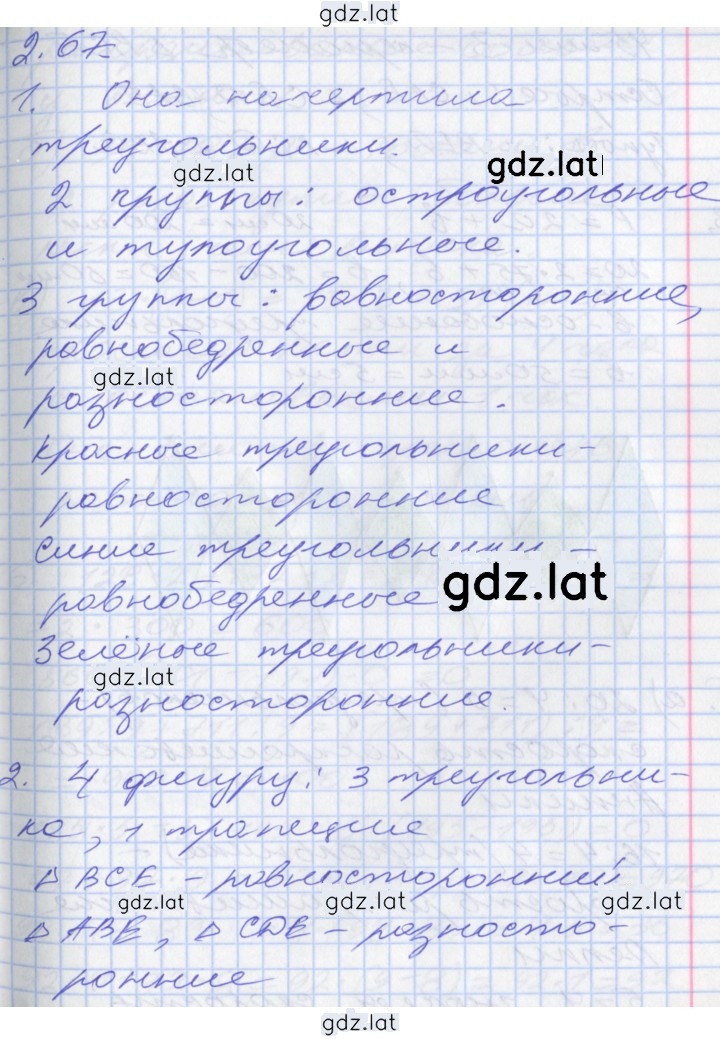 gdz.lat
2.67.
1. Она начертила
треугольники.
gdz.lat
gdz.lat
2 группы: остроугольные
и тупоугольные.
3 группы: равносторонние,
равнобедренные и
gdz.lat
разносторонние.
красные треугольники-
равносторонние
синие треугольники -
gdz.lat
равнобедренные
зелёные треугольники-
gdz.lat
разносторонние.
2. 4 фигуру: 3 треугольни-
ка, 1 трапецие
△ BCE - равносторонний
gdz.lat gdz.lat gdz.lat
△ ABE, △ CDE - разносто-
ронние
gdz.lat